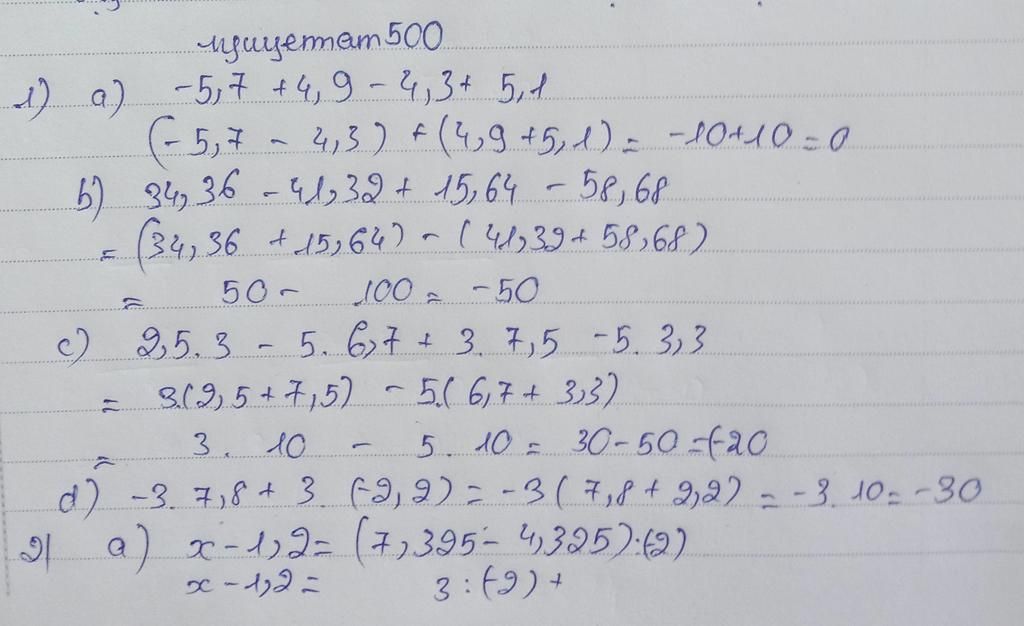 nguyettam500
1) a) -5,7 + 4,9 - 4,3 + 5,1
(-5,7 - 4,3) + (4,9 + 5,1) = -10 + 10 = 0
b) 34,36 - 41,32 + 15,64 - 58,68
= (34,36 + 15,64) - (41,32 + 58,68)
= 50 - 100 = -50
c) 2,5 . 3 - 5 . 6,7 + 3 . 7,5 - 5 . 3,3
= 3.(2,5 + 7,5) - 5.(6,7 + 3,3)
= 3 . 10 - 5 . 10 = 30 - 50 = (-20
d) -3 . 7,8 + 3 . (-2,2) = -3 (7,8 + 2,2) = -3 . 10 = -30
2) a) x - 1,2 = (7,325 - 4,325) : (-2)
x - 1,2 = 3 : (-2) +